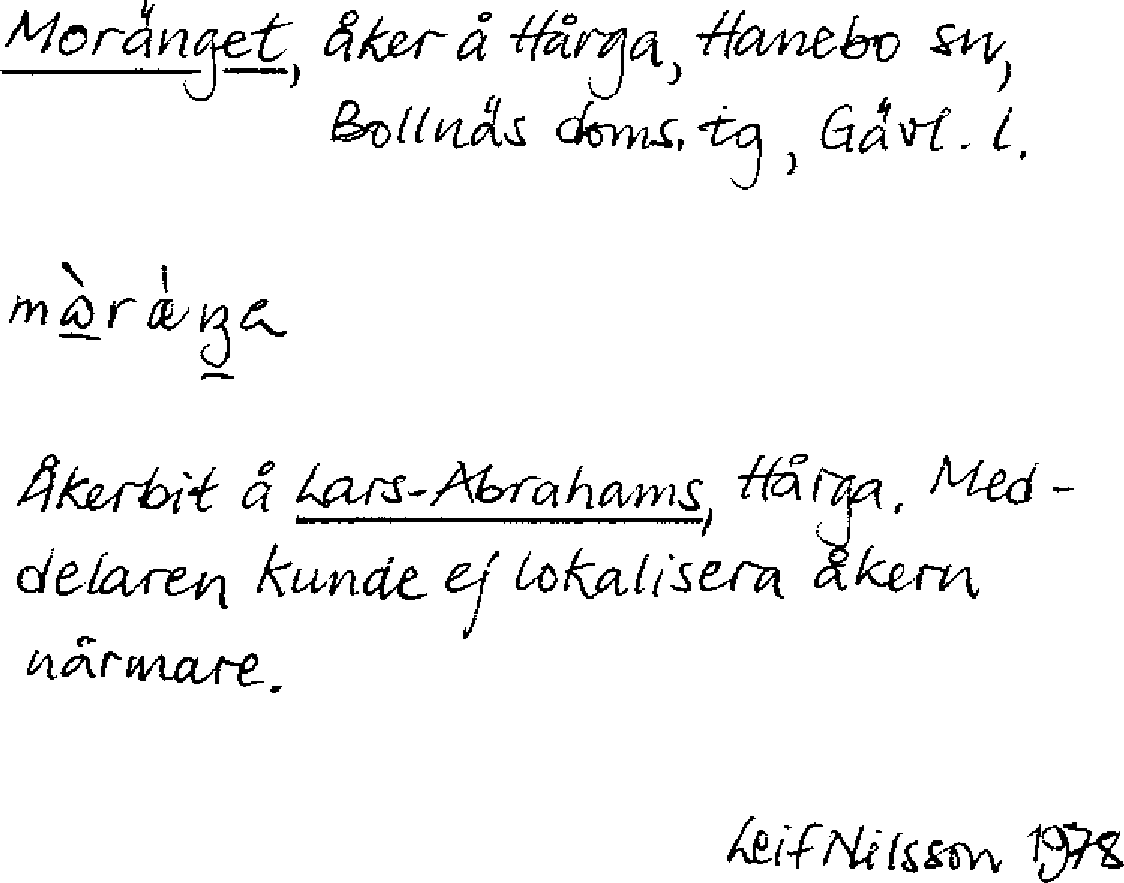 Moränget, åker å Hårga, Hanebo sn,
Bollnäs doms. tg, Gävl. l.
Åkerbit å Lars-Abrahams, Hårga. Med-
delaren kunde ej lokalisera åkern
närmare.
Leif Nilsson 1978